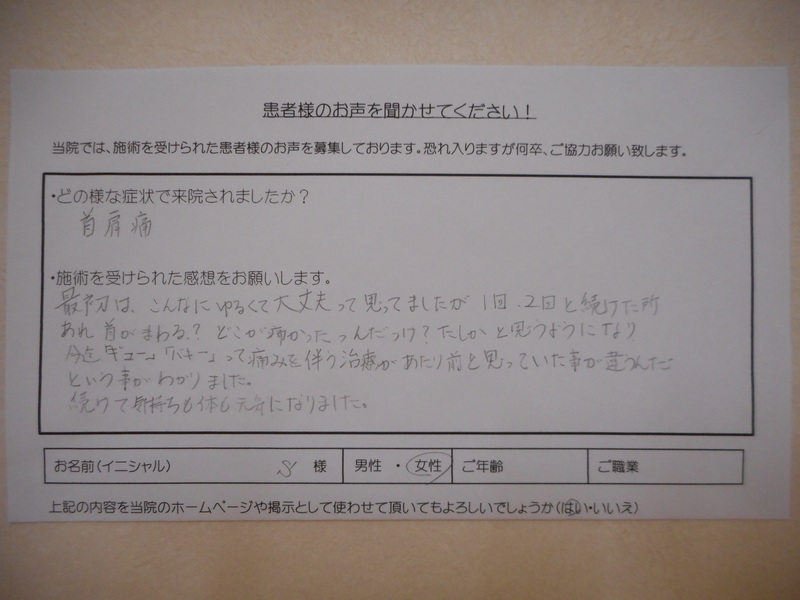 患者様のお声を聞かせてください！
当院では、施術を受けられた患者様のお声を募集しております。恐れ入りますが何卒、ご協力お願い致します。
・どの様な症状で来院されましたか？
首肩痛
・施術を受けられた感想をお願いします。
最初は、こんなにゆるくて大丈夫って思ってましたが1回、2回と続けた所
あれ首がまわる？どこが痛かったっんだっけ？たしかと思うようになり
今迄「ギュー」「バキー」って痛みを伴う治療があたり前と思っていた事が違うんだ
という事がわかりました。
続けて気持ちも体も元気になりました。
お名前（イニシャル） S 様 男性 ・ 女性 ご年齢 ご職業
上記の内容を当院のホームページや掲示として使わせて頂いてもよろしいでしょうか（はい・いいえ）